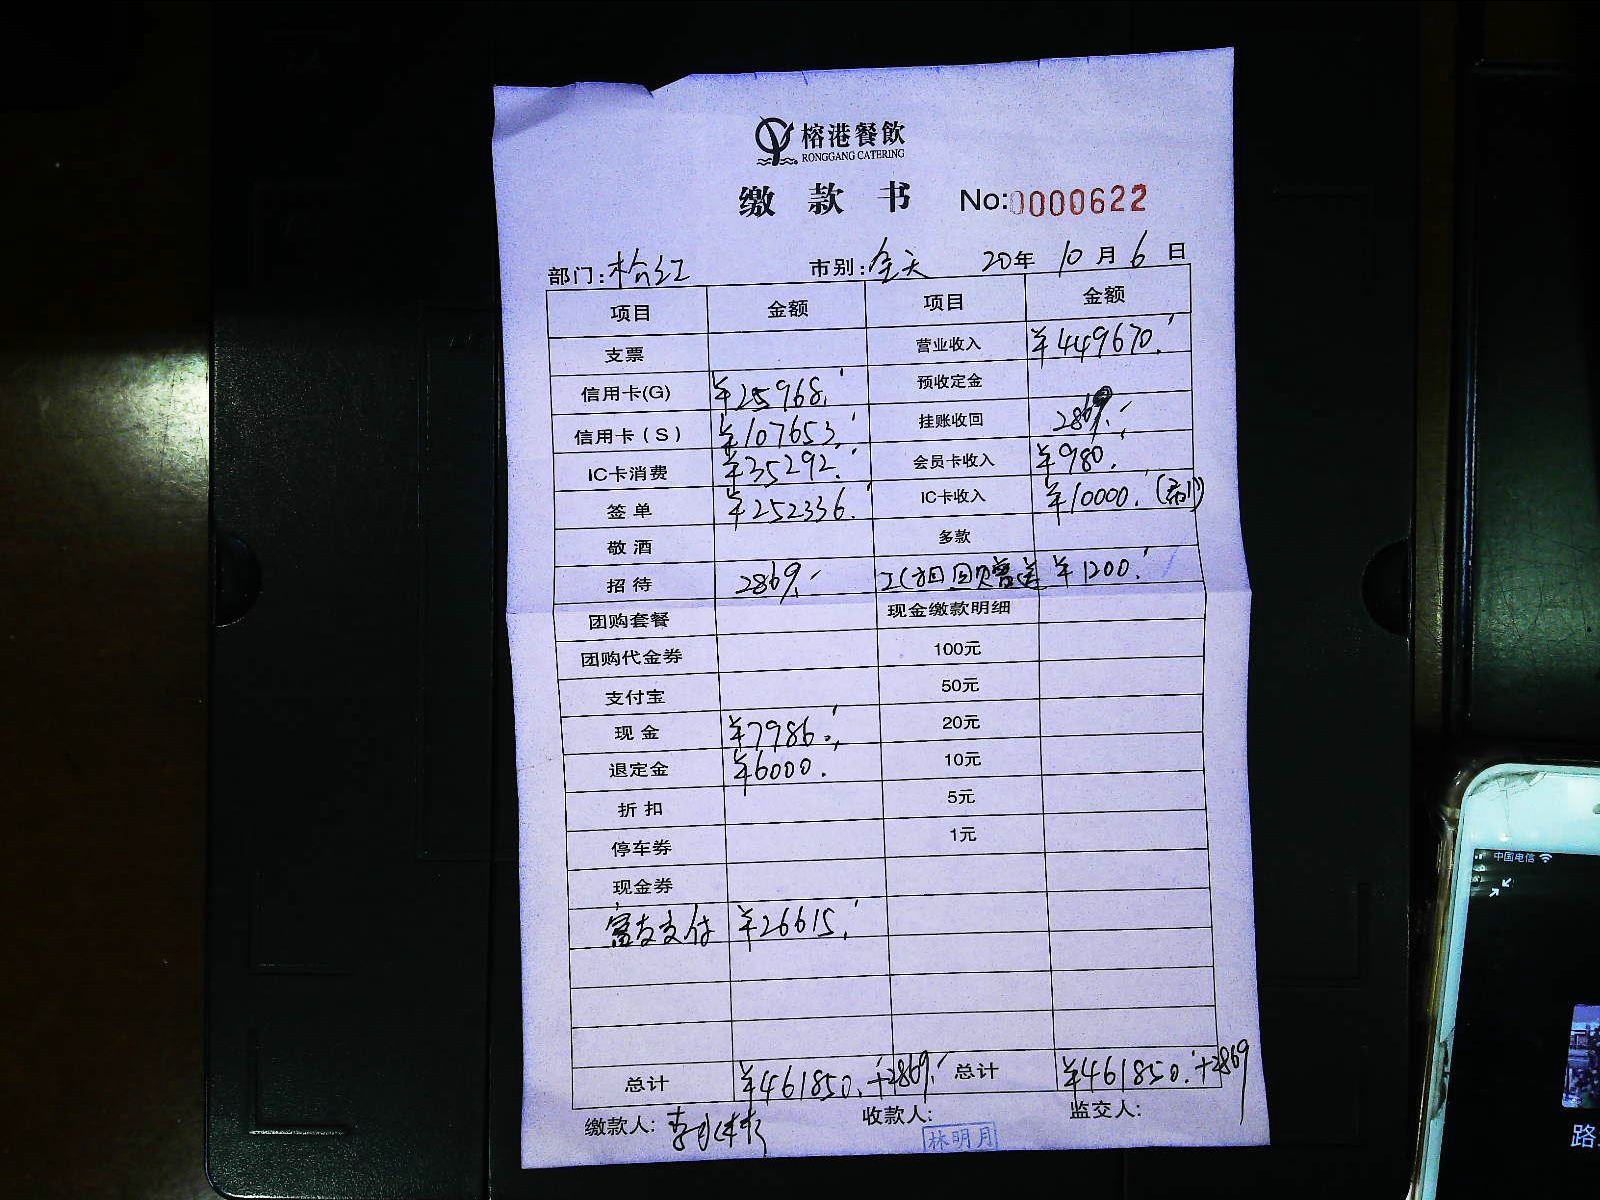 榕港餐飲
RONGGANG CATERING
缴款书 No:0000622
部门: 市别:全天 20年 10月 6日
项目 金额 项目 金额
支票 营业收入 ¥449670.
信用卡(G) ¥25968. 预收定金
信用卡(S) ¥107653. 挂账收回 2869.
IC卡消费 ¥35292. 会员卡收入 ¥980.
签单 ¥252336. IC卡收入 ¥10000.
敬酒 多款
招待 2869. 赠送 ¥1200.
团购套餐 现金缴款明细
团购代金券 100元
支付宝 50元
现金 ¥7986. 20元
退定金 ¥6000. 10元
折扣 5元
停车券 1元
现金券
富友支付 ¥26615.
总计 ¥461850.+2869. 总计 ¥461850.+2869
缴款人: 收款人: 监交人:
林明月
中国电信
路